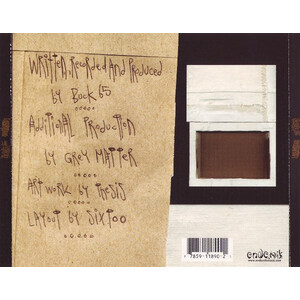 Written, Recorded And Produced
by Buck 65
Additional Production
by Grey Matter
Art work by Thesis
Layout by Sixtoo
endemik